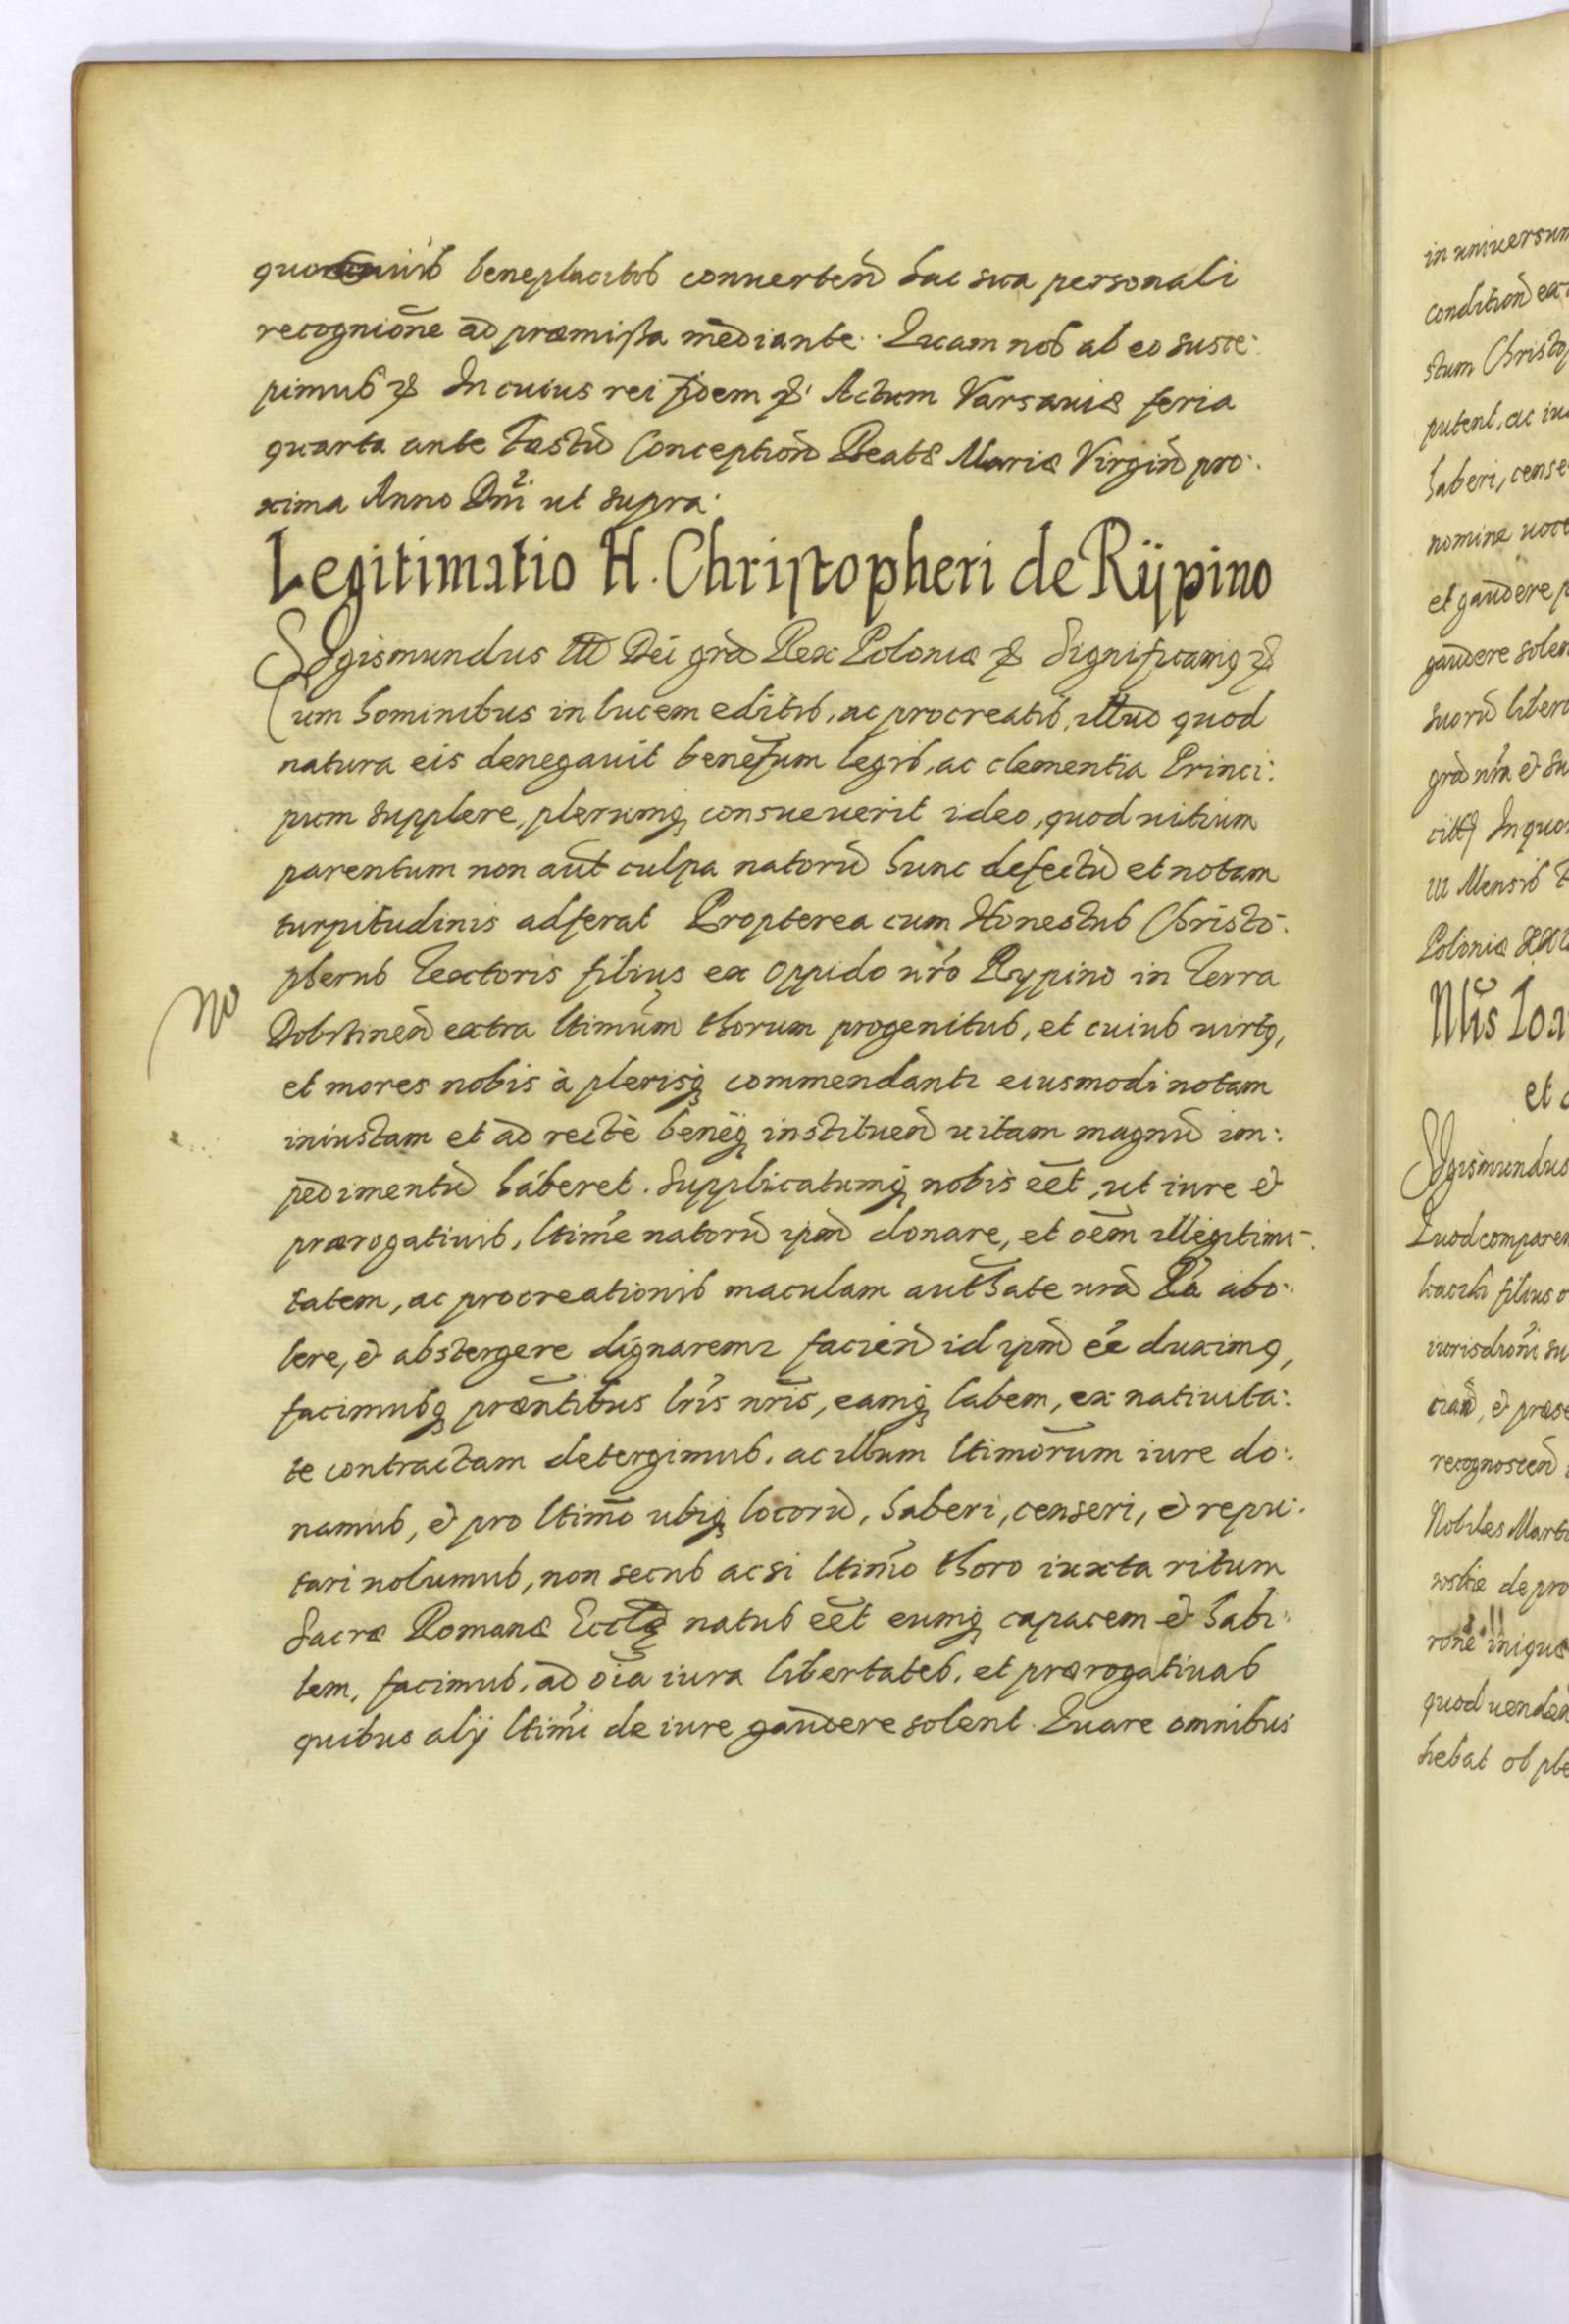 beneplacitos conuerten̄ hac sua personali
recognio͞ne ad præmissa mediante. Quam nos ab eo susce:
pimus etc̄ In cuius rei fidem etc̄. Actum Varsauiæ feria
quarta ante Festū Conception̄ Beatæ Mariæ Virgin̄ pro:
xima Anno Dn̄i ut supra.
Legitimatio H. Christopheri de Rijpino
Sigismundus III Dei gr̄a Rex Poloniæ etc̄ Significamq̨ etc̄
Cum hominibus in lucem editis, ac procreatis, illud quod
natura eis denegauit benef̄um legis, ac clementia Princi:
pum supplere, plerumq̨ consueuerit ideo, quod uitium
parentum non aūt culpa natorū hunc defectū et notam
turpitudinis adferat Propterea cum Honestus Christo:
pherus Textoris filius ex oppido nr̄o Rypino in Terra
Dobrzinen̄ extra ltimūm thorum progenitus, et cuius uirtq̨,
et mores nobis à plerisq̨ commendant2 eiusmodi notam
iniustam et ad rectè beneq̨ instituen̄ uitam magnū im:
pedimentū haberet. Supplicatumq̨ nobis ēet, ut iure &
prærogatiuis, ltim̄e natorū ipm̄ donare, et oēm illegitimi:
tatem, ac procreationis maculam authāte nrā Rā abo:
lere, & abstergere dignarem2 facien̄ id ipm̄ ēe duximq̨,
facimusq̨ præn̄tibus lr̄is nr̄is, eamq̨ labem, ex natiuita:
te contractam detergimus, ac illum ltimōrum iure do:
namus, & pro ltimo͞ ubiq̨ locorū, haberi, censeri, & repu:
tari uolumus, non secus ac si ltim̄o thoro iuxta ritum
Sacræ Romanæ Ecclę̄ natus ēet eumq̨ capacem & habi:
lem, facimus, ad oīa iura libertates, et prærogatiuas
quibus alij ltim̄i de iure gaudere solent. Quare omnibus
in uniuersum
stum
putent, ac
haberi, cense
nomine
et gaudere
gaudere solen
suorū liber
Poloniæ
et
Sigismundus
Quod comparen
filius
recognoscen̄
Nobiles
quod uenden
hebat ob